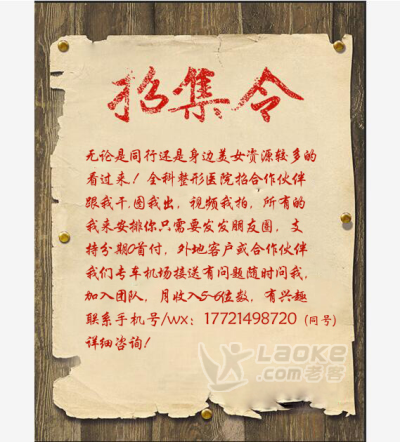 招集令
无论是同行还是身边美女资源较多的
看过来！全科整形医院招合作伙伴
跟我干,图我出，视频我拍，所有的
我来安排你只需要发发朋友圈，支
持分期0首付，外地客户或合作伙伴
我们专车机场接送有问题随时问我，
加入团队，月收入5-6位数，有兴趣
联系手机号/wx：17721498720（同号）
详细咨询！
LAOKE
.com老客